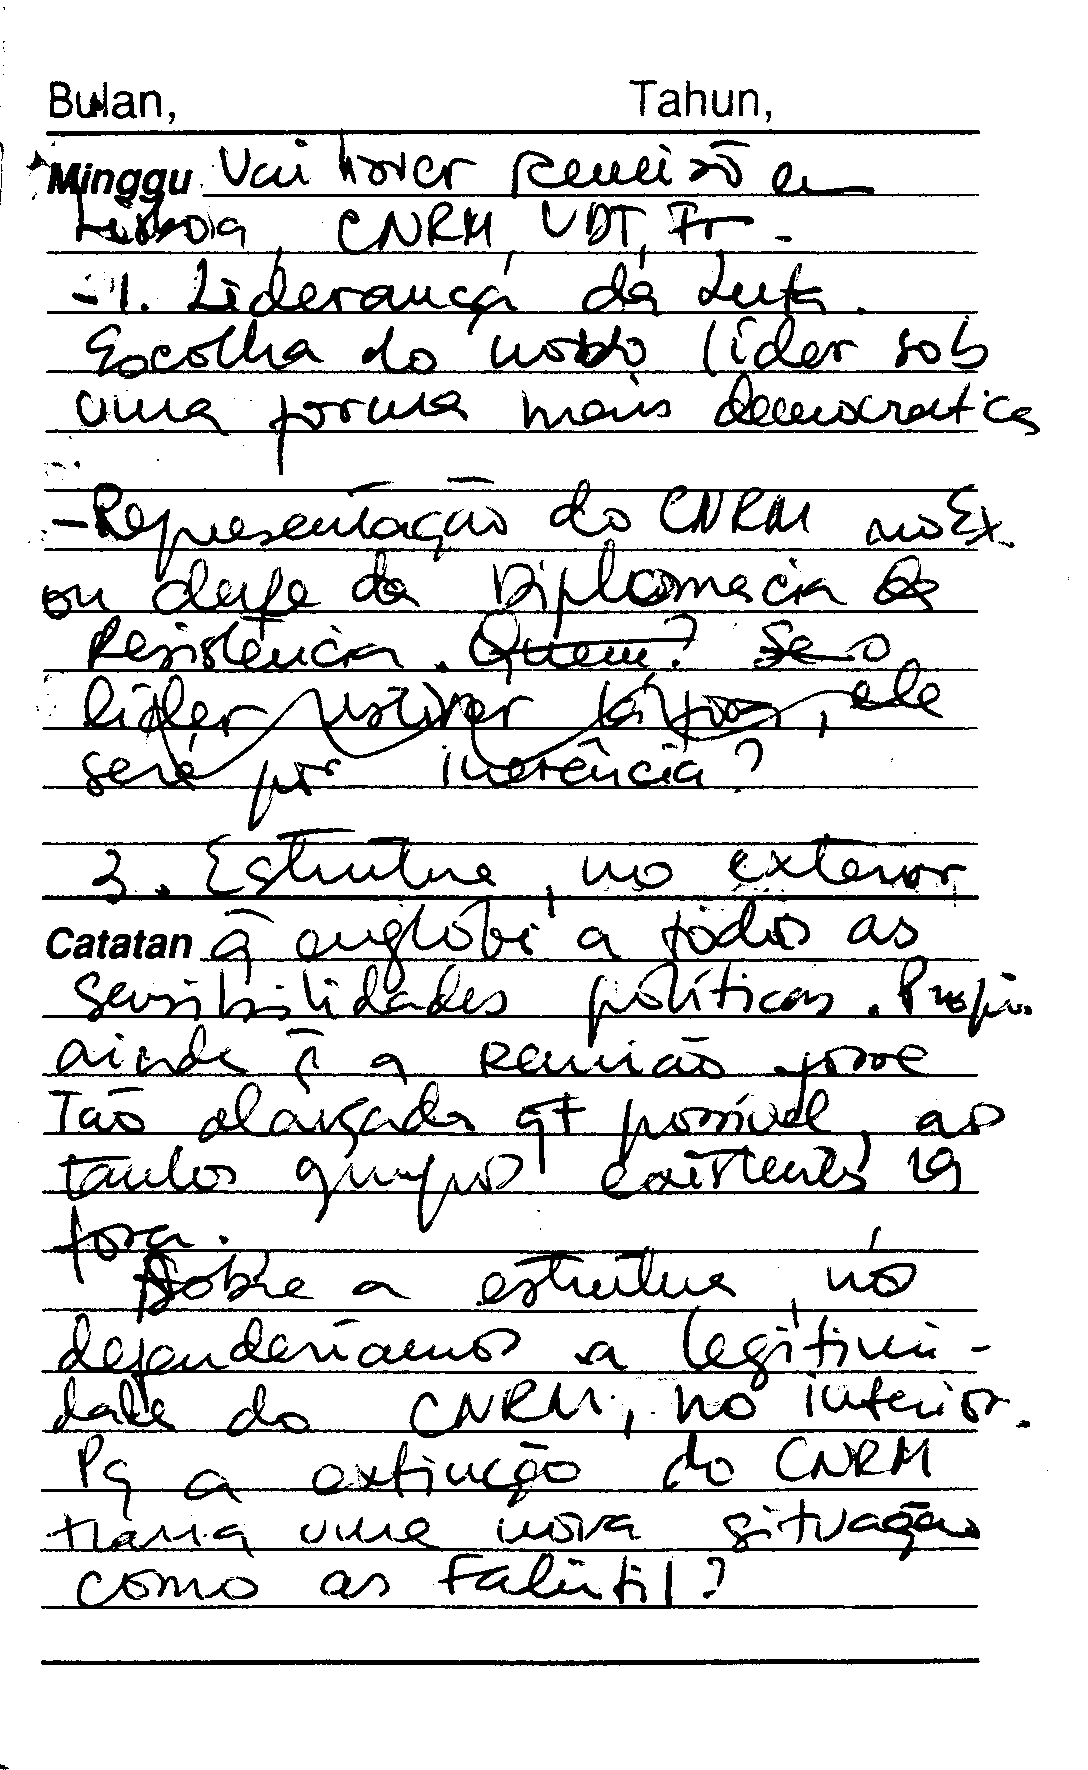 Bulan, Tahun,
Minggu Vai haver Reunião em
Lisboa, CNRM, UDT, Fr.
-1. Liderança da Luta.
Escolha do nosso líder sob
uma forma mais democratica
-Representação do CNRM no Ex.
ou chefe da Diplomacia da
Resistência. Quem? Se o
líder estiver lá fora, ele
será por inerência?
3. Estrutura, no exterior,
Catatan q̃ englobe a todos as
sensibilidades políticas. Propus
ainda q̃ a Reunião fosse
Tão alargada qt possível, aos
tantos grupos existentes lá
fora.
Sobre a estrutura, nós
defenderíamos a legitimi-
dade do CNRM, no interior.
Pq a extinção do CNRM
traria uma nova situação
como as Falintil?